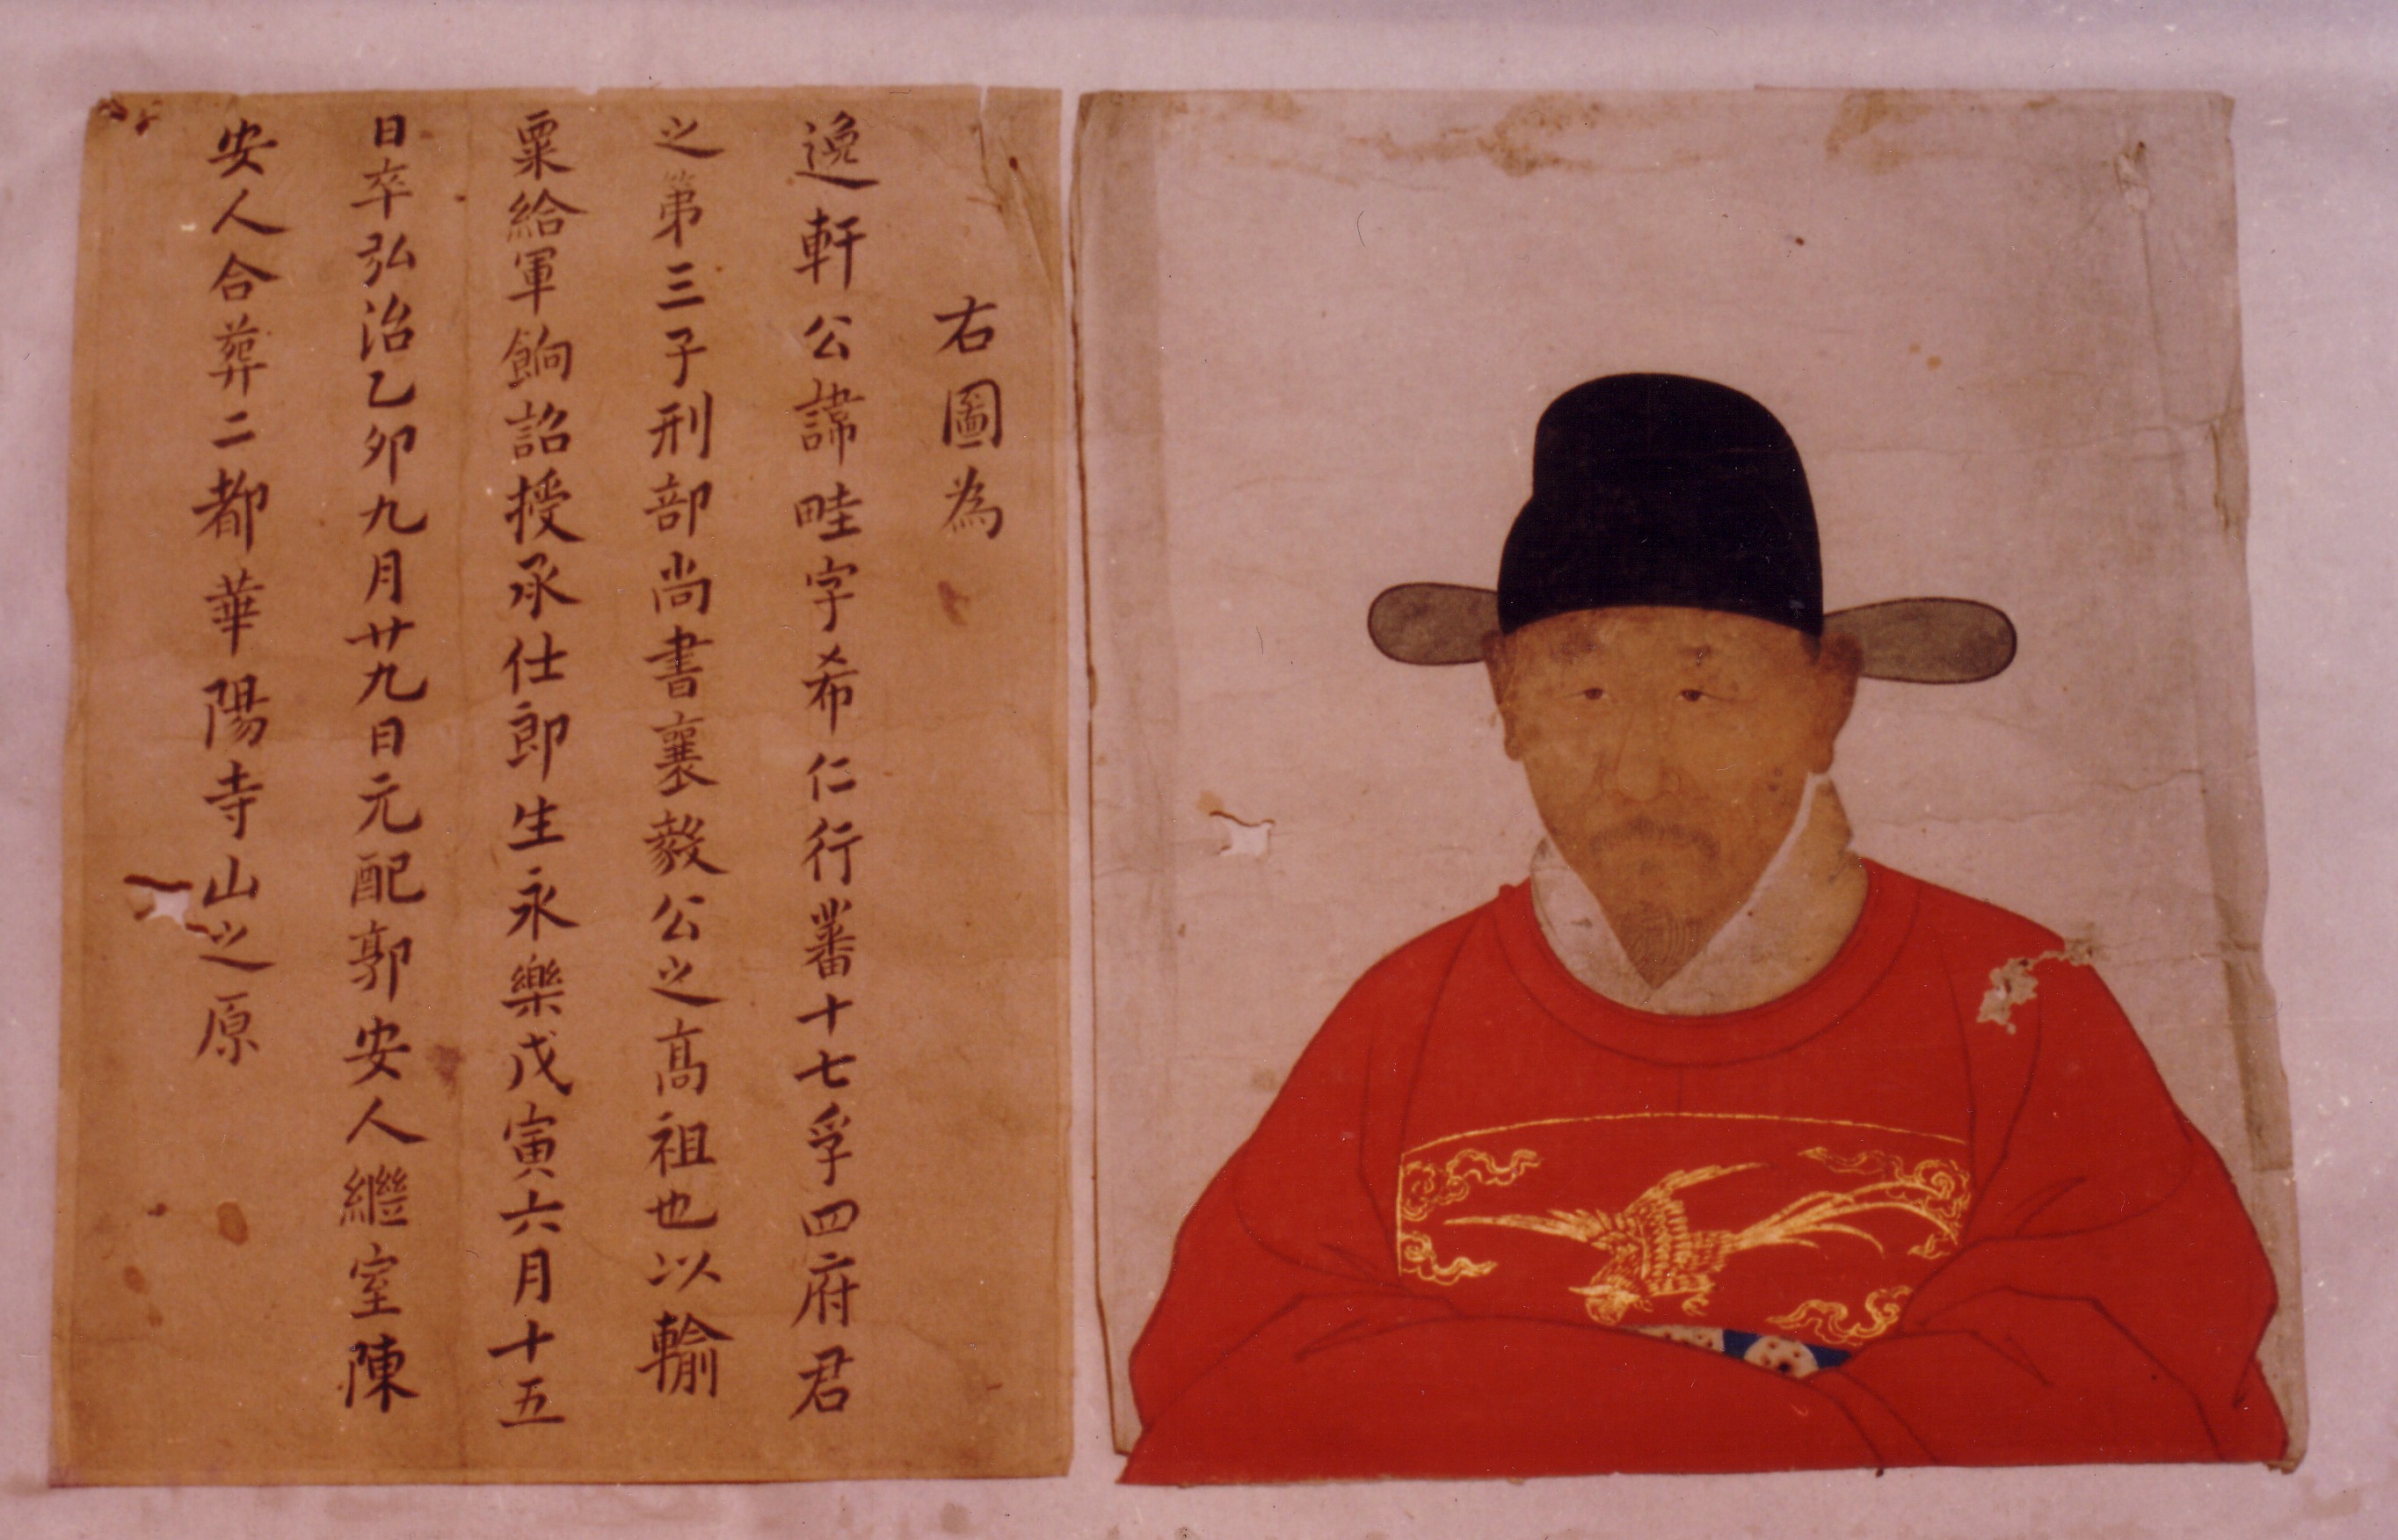 右圖為
逸軒公諱畦字希仁行蕃十七孚四府君
之第三子刑部尚書襄毅公之高祖也以輸
粟給軍餉詔授承仕郎生永樂戊寅六月十五
日卒弘治乙卯九月廿九日元配郭安人繼室陳
安人合葬二都華陽寺山之原